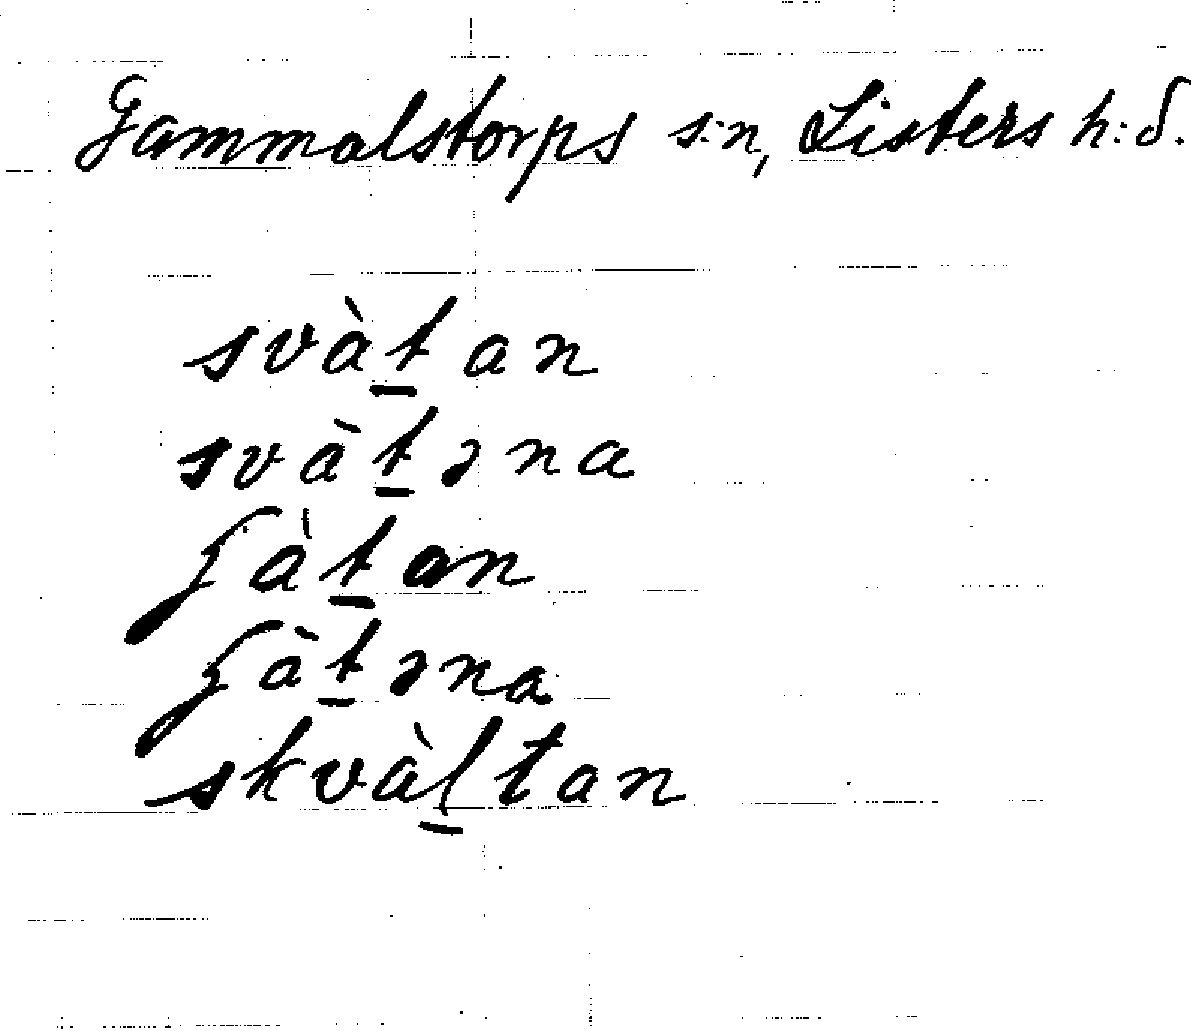 Gammalstorps s:n, Listers h:d.
svàt̲an
svàt̲əna
ʃàt̲an
ʃàt̲əna
skvàl̲tan